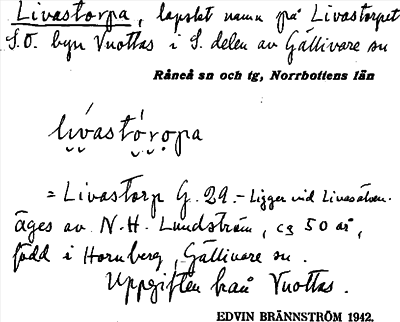 Livastorpa, lapskt namn på Livastorpet
S.O. byn Vuottas i S. delen av Gällivare sn
Råneå sn och tg, Norrbottens län
lívastó́ropa
= Livastorp G. 29. – Ligger vid Livasälven.
äges av N.H. Lundström, c9 50 år,
född i Hornberg, Gällivare sn.
Uppgiften från Vuottas.
EDVIN BRÄNNSTRÖM 1942.